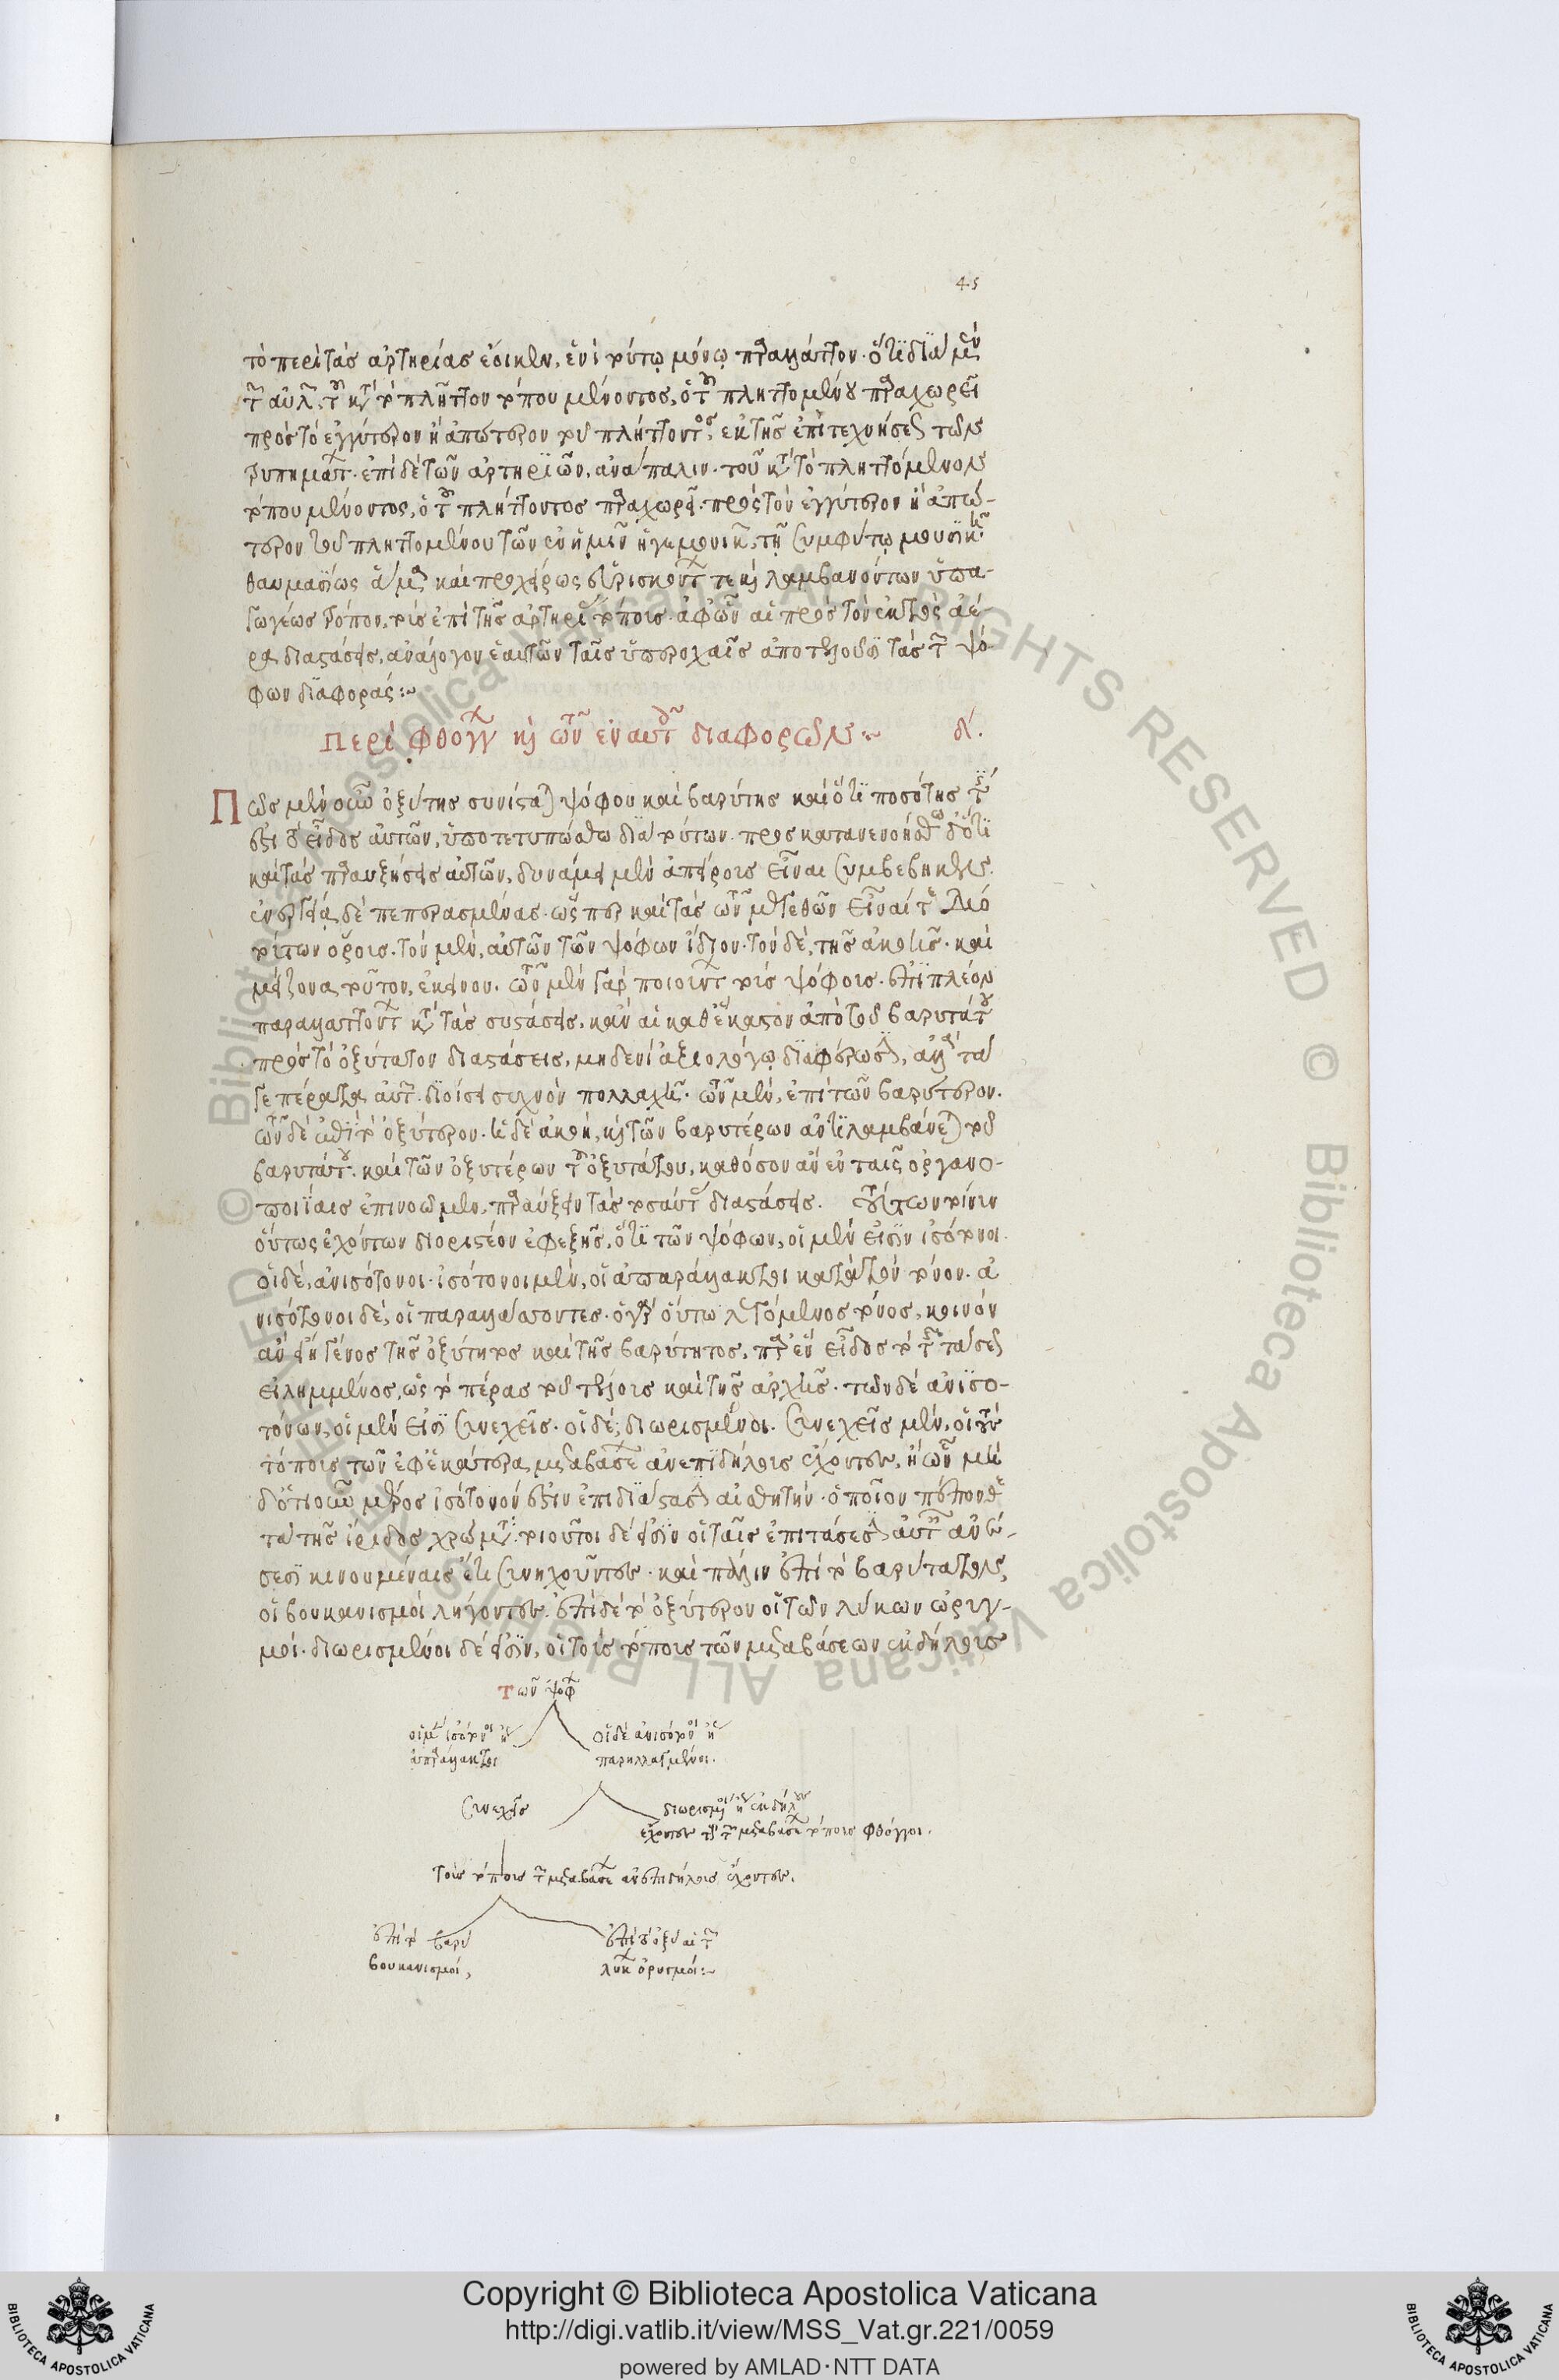 45
τὸ περὶ τὰς ἀρτηρίας ἔοικεν, ἑνὶ τούτῳ μόνῳ παραλλάττον. ὅτι διὰ μὲν
τῶν αὐλῶν, τοῦ κατὰ τὸ πλῆττον τόπου μένοντος, ὁ τοῦ πληττομένου παραχωρεῖ
πρὸς τὸ ἐγγύτερον ἢ ἀπώτερον τοῦ πλήττοντος, ἐκ τῆς ἐπιτεχνήσεως τῶν
τρυπημάτων. ἐπὶ δὲ τῶν ἀρτηριῶν, ἀνάπαλιν. τοῦ κατὰ τὸ πληττόμενον
τόπου μένοντος, ὁ τοῦ πλήττοντος παραχωρεῖ. πρὸς τὸν ἐγγύτερον ἢ ἀπώ-
τερον τοῦ πληττομένου τῶν ἐν ἡμῖν ἡγεμονικῶν, τῇ συμφύτῳ μουσικῇ
θαυμασίως ἅμα καὶ προχείρως εὑρισκόντων τε καὶ λαμβανόντων ὑπα-
γωγέως τρόπον, τοὺς ἐπὶ τῆς ἀρτηρίας τόπους. ἀφ' ὧν αἱ πρὸς τὸν ἐκτὸς ἀέ-
ρα διαστάσεις, ἀνάλογον ἑαυτῶν ταῖς ὑπεροχαῖς ἀποτελοῦσι τὰς τῶν ψό-
φων διαφοράς:~
Περὶ φθόγγων καὶ τῶν ἐν αὐτοῖς διαφορῶν:~ δ'.
Πῶς μὲν οὖν ὀξύτης συνίσταται ψόφου καὶ βαρύτης καὶ ὅτι ποσότης τίς
ἐστι τὸ εἶδος αὐτῶν, ὑποτετυπώσθω διὰ τούτων. προσκατανενοήσθω δ' ὅτι
καὶ τὰς παραυξήσεις αὐτῶν, δυνάμει μὲν ἀπείρους εἶναι συμβέβηκεν.
ἐνεργείᾳ δὲ πεπερασμένας. ὥσπερ καὶ τὰς τῶν μεγεθῶν εἶναί τε δύο
τούτων ὅρους. τὸν μὲν, αὐτῶν τῶν ψόφων ἴδιον. τὸν δὲ, τῆς ἀκοῆς. καὶ
μείζονα τοῦτον, ἐκείνου. τῶν μὲν γὰρ ποιούντων τοὺς ψόφους. ἐπὶ πλέον
παραλλαττόντων κατὰ τὰς συστάσεις, κἂν αἱ καθ' ἕκαστον ἀπὸ τοῦ βαρυτάτου
πρὸς τὸ ὀξύτατον διαστάσεις, μηδενὶ ἀξιολόγῳ διαφέρωσιν, ἀλλὰ τά
γε πέρατα αὐτῶν διοίσει συχνὸν πολλαχῇ. τῶν μὲν, ἐπὶ τῶν βαρύτερον.
τῶν δὲ ἐπὶ τὸ ὀξύτερον. ἡ δὲ ἀκοὴ, καὶ τῶν βαρυτέρων ἀντιλαμβάνεται τοῦ
βαρυτάτου. καὶ τῶν ὀξυτέρων τοῦ ὀξυτάτου, καθόσον ἂν ἐν ταῖς ὀργανο-
ποιίαις ἐπινοῶμεν, παραύξειν τὰς τοσαύτας διαστάσεις. τούτων τοίνυν
οὕτως ἐχόντων διοριστέον ἐφεξῆς, ὅτι τῶν ψόφων, οἱ μὲν εἰσὶν ἰσότονοι.
οἱ δὲ, ἀνισότονοι. ἰσότονοι μὲν, οἱ ἀπαράλλακτοι κατὰ τὸν τόνον. ἀ
νισότονοι δὲ, οἱ παραλλάσσοντες. ὁ γὰρ οὕτω λεγόμενος τόνος, κοινὸν
ἂν εἴη γένος τῆς ὀξύτητος καὶ τῆς βαρύτητος, παρ' ἓν εἶδος τὸ τῆς τάσεως
εἰλημμένος, ὡς τὸ πέρας τοῦ τέλους καὶ τῆς ἀρχῆς. τῶν δὲ ἀνισο-
τόνων, οἱ μὲν εἰσὶ συνεχεῖς. οἱ δὲ, διωρισμένοι. συνεχεῖς μὲν, οἱ τοὺς
τόπους τῶν ἐφ' ἑκάτερα μεταβάσεων ἀνεπιδήλους ἔχοντες, ἢ ὧν μη
δ' ὁτιοῦν μέρος ἰσότονόν ἐστιν ἐπὶ διάστασιν αἰσθητήν. ὁποῖον πέπονθε
τὰ τῆς ἴριδος χρώματα. τοιοῦτοι δέ εἰσιν οἱ ταῖς ἐπιτάσεσιν αὐτῶν ἀνέ-
σεσι κινουμέναις ἔτι συνηχοῦντες. καὶ πάλιν ἐπὶ τὸ βαρύτατον,
οἱ βουκανισμοὶ λήγοντες. ἐπὶ δὲ τὸ ὀξύτερον οἱ τῶν λύκων ὠρυγ-
μοί. διωρισμένοι δέ εἰσιν, οἱ τοὺς τόπους τῶν μεταβάσεων ἐκδήλους
τῶν ψόφων
οἱ μὲν ἰσότονοι καὶ οἱ δὲ ἀνισότονοι καὶ
ἀπαράλλακτοι παρηλλαγμένοι.
συνεχεῖς διωρισμένοι καὶ ἐκδήλους
ἔχοντες τοὺς τῶν μεταβάσεων τόπους φθόγγοι.
τοὺς τόπους τῶν μεταβάσεων ἀνεπιδήλους ἔχοντες.
ἐπὶ τὸ βαρὺ ἐπὶ τὸ ὀξὺ αἱ τῶν
βουκανισμοί, λύκων ὀρυγμοί:~
Copyright © Biblioteca Apostolica Vaticana
http://digi.vatlib.it/view/MSS_Vat.gr.221/0059
powered by AMLAD·NTT DATA
BIBLIOTECA APOSTOLICA VATICANA
BIBLIOTECA APOSTOLICA VATICANA
© Biblioteca Apostolica Vaticana ALL RIGHTS RESERVED